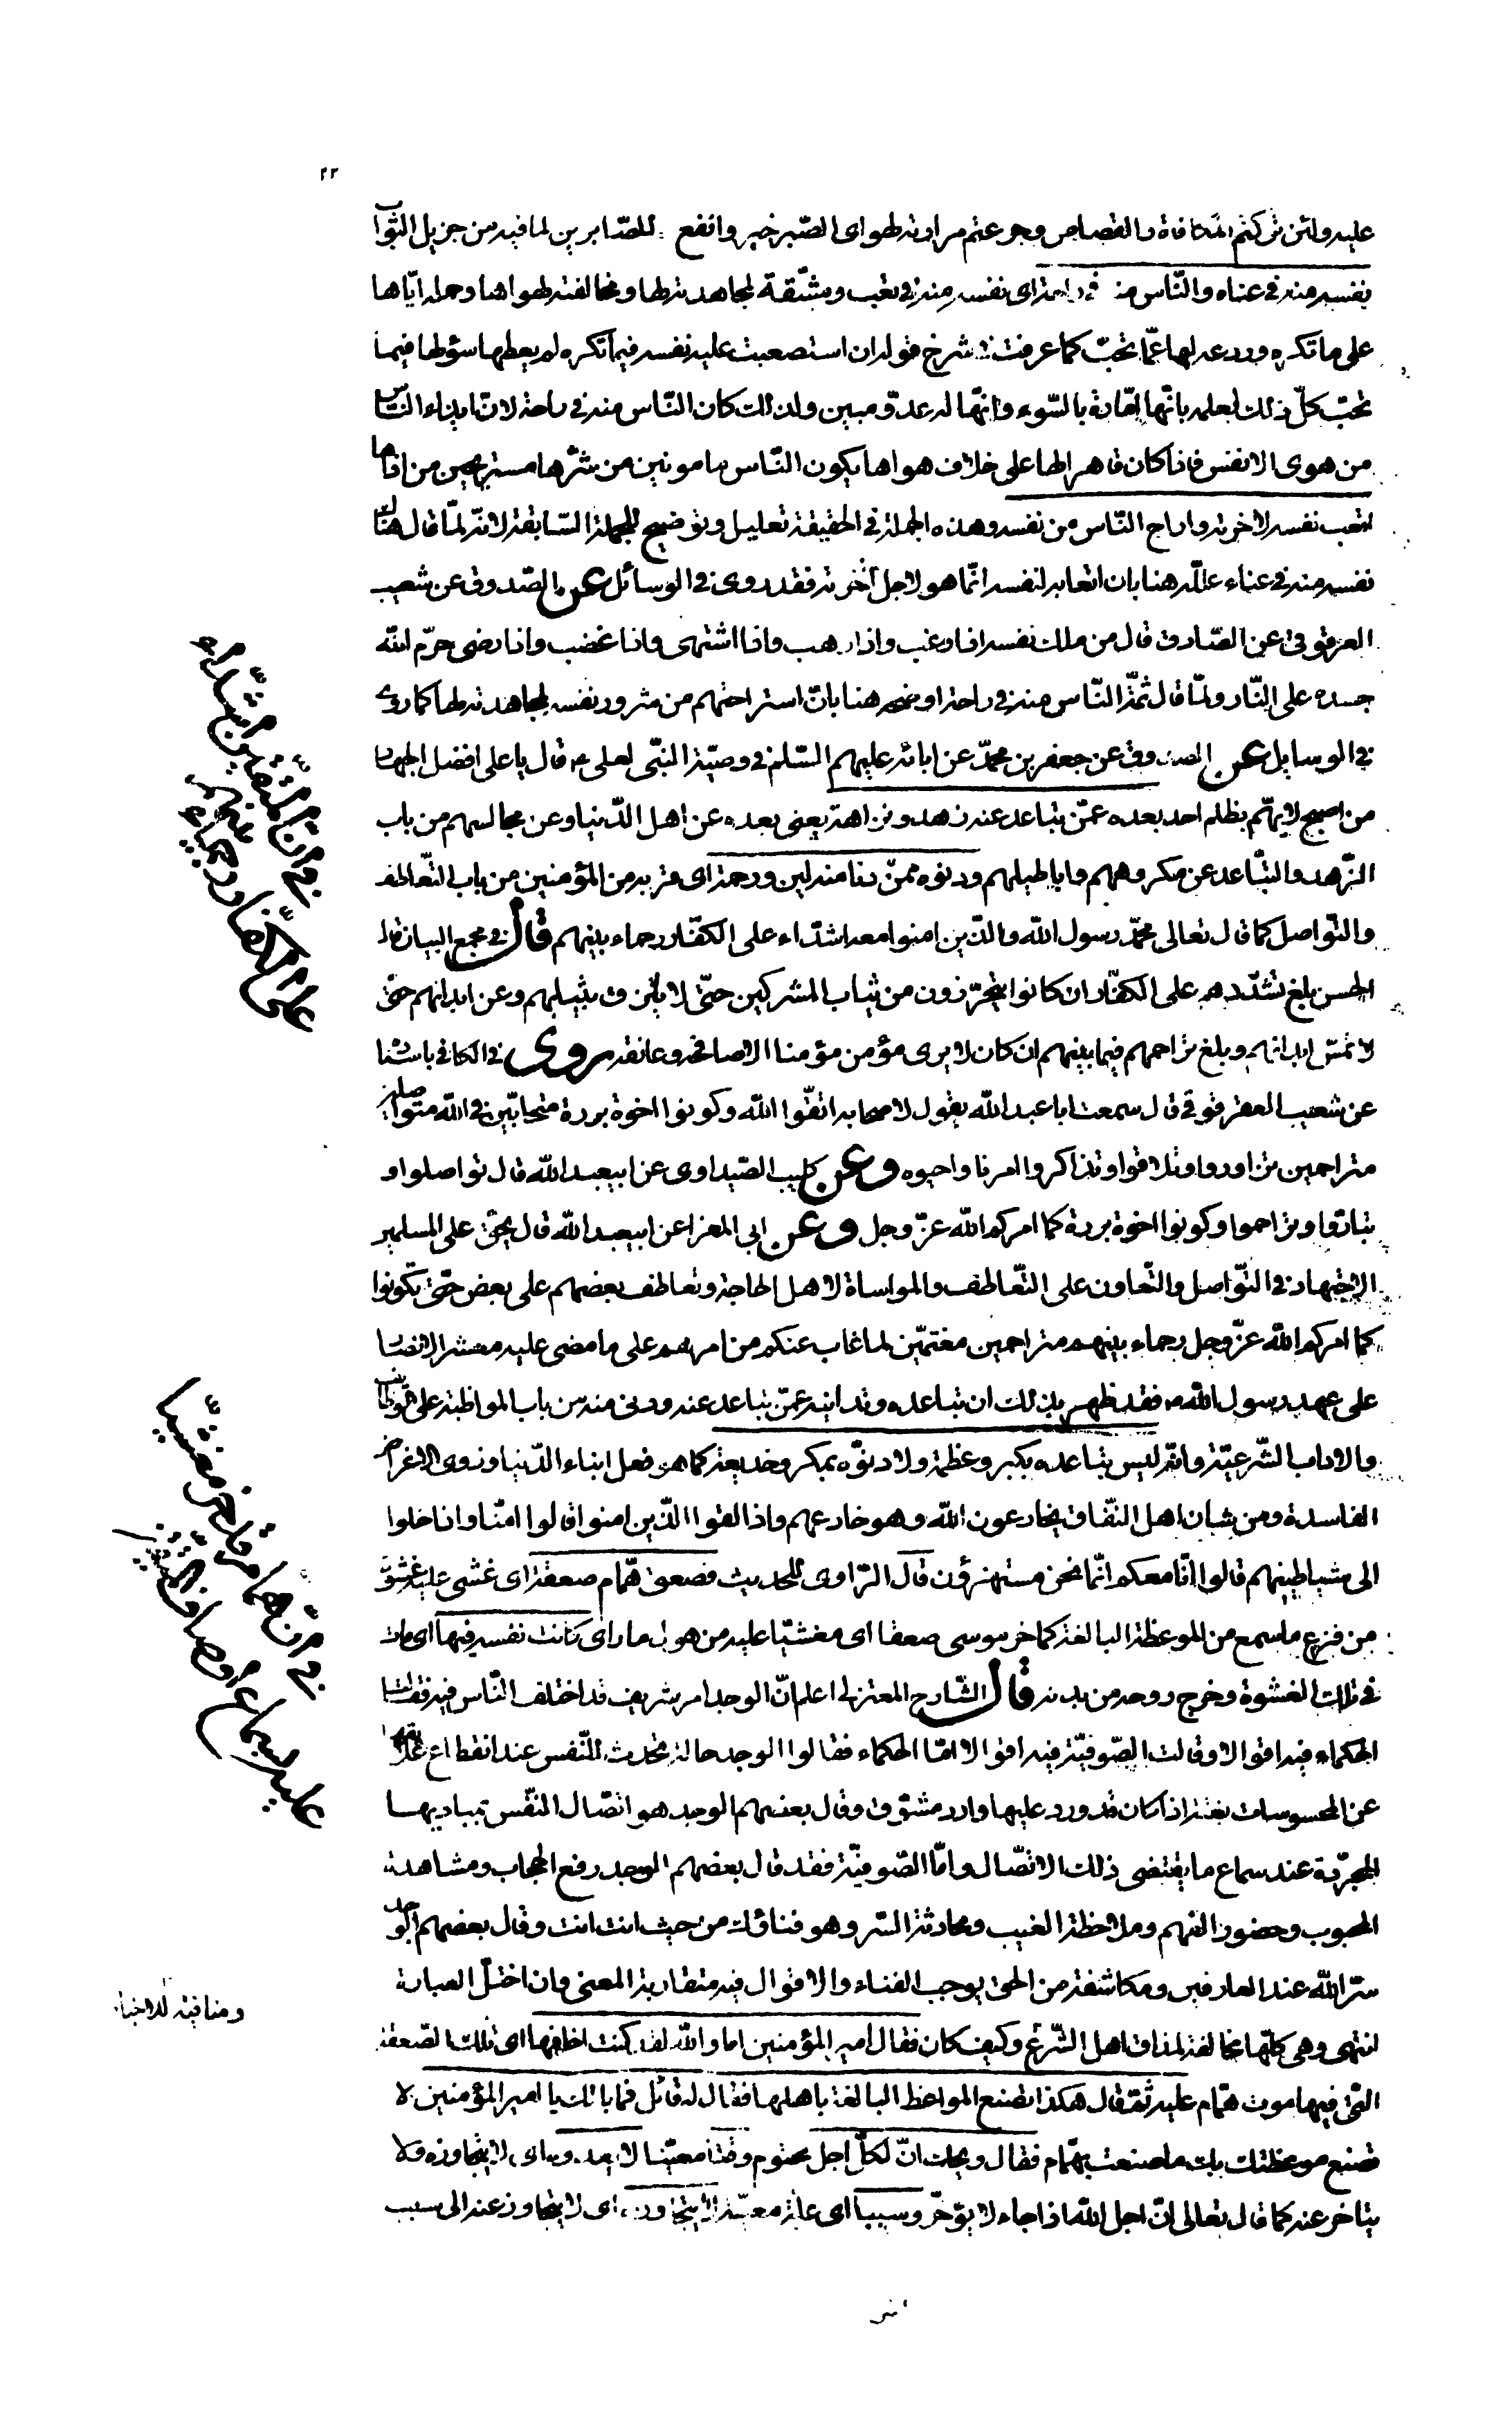 ٢٢
عليه ولئن تركتم المكافاة والقصاص وجرعتم مرارته لهو اى الصّبر خير وانفع للصّابرين لما فيه من جزيل الثّواب
نفسه منه فى عناء والنّاس منه فى راحة اى نفسه منه فى تعب ومشّقة لمجاهدته لها ومخالفته لهواها وحمله ايّاها
على ما تكره وردعه لها عمّا تحبّ كما عرفت فى شرح قوله ان استصعبت عليه نفسه فيما تكره لم يعطها سؤلها فيما
تحبّ كلّ ذلك لعلمه بانّها لامّارة بالسّوء وانّها له عدوّ مبين ولذلك كان النّاس منه فى راحة لانّ ايذاء النّاس
من هوى الانفس فاذا كان قاهرا لها على خلاف هواها يكون النّاس مامونين من شرّها مستريحين من اذاها
اتعب نفسه لاخرته واراح النّاس من نفسه وهذه الجملة فى الحقيقة تعليل وتوضيح للجملة السّابقة لانّه لمّا قال هناك
نفسه منه فى عناء علّله هنا بان اتعابه لنفسه انّما هو لاجل آخرته فقد روى فى الوسائل عن الصّدوق عن شعيب
العقرقوفى عن الصّادق قال من ملك نفسه اذا رغب واذا رهب واذا اشتهى واذا غضب واذا رضى حرّم الله
جسده على النّار ولمّا قال ثمّة النّاس منه فى راحة اوضحه هنا بانّ استراحتهم من شرور نفسه لمجاهدته لها كما روى
فى الوسايل عن الصدوق عن جعفر بن محمّد عن ابائه عليهم السّلم فى وصيّة النّبى لعلى ع قال يا على افضل الجهاد
من اصبح لا يهّم بظلم احد بعده عمّن تباعد عنه زهد ونزاهة يعنى بعده عن اهل الدّنيا وعن مجالسهم من باب
الزّهد والتّباعد عن مكروههم واباطيلهم ودنوه ممّن دنا منه لين ورحمة اى قربه من المؤمنين من باب التّعاطف
والتّواصل كما قال تعالى محمّد رسول الله والّذين امنوا معه اشدّاء على الكفّار رحماء بينهم قال فى مجمع البيان قال
الحسن بلغ تشدّدهم على الكفّار ان كانوا يتحرّزون من ثياب المشركين حتّى لا يلتزق بثيابهم وعن ابدانهم حتّى
لا تمسّ ابدانهم وبلغ تراحمهم فيما بينهم ان كان لا يرى مؤمن مؤمنا الا صافحه وعانقه وروى فى الكافى باسناده
عن شعيب العقرقوفى قال سمعت ابا عبد الله يقول لاصحابه اتّقوا الله وكونوا اخوة بررة متحابّين فى الله متواصلين
متراحمين تزاوروا وتلاقوا وتذاكروا امرنا واحيوه وعن كليب الصّيداوى عن ابيعبد الله قال تواصلوا و
تبارّوا وتراحموا وكونوا اخوة بررة كما امركم الله عزّ وجل وعن ابى المغرا عن ابيعبد الله قال يحقّ على المسلمين
الاجتهاد فى التّواصل والتّعاون على التّعاطف والمواساة لاهل الحاجة وتعاطف بعضهم على بعض حتّى تكونوا
كما امركم الله عزّ وجل رحماء بينهم متراحمين مغتمّين لما غاب عنكم من امرهم على ما مضى عليه معشر الانصار
على عهد رسول الله ص فقد ظهر بذلك ان تباعده وتدانيه عمّن تباعد عنه ودنى منه من باب المواظبة على الوظايف
والاداب الشّرعيّة وانّه ليس تباعده بكبر وعظمة ولا دنوّه بمكر وخديعة كما هو فعل ابناء الدّنيا وذوى الاغراض
الفاسدة ومن شان اهل النّفاق يخادعون الله وهو خادعهم واذا لقوا الّذين امنوا قالوا امنّا واذا خلوا
الى شياطينهم قالوا انّا معكم انّما نحن مستهزؤن قال الرّاوى للحديث فصعق همّام صعقة اى غشى عليه غشوة
من فزع ما سمع من الموعظة البالغة كما خر موسى صعقا اى مغشيّا عليه من هول ما راى كانت نفسه فيها اى مات
فى تلك الغشوة وخرج روحه من بدنه قال الشّارح المعتزلى اعلم انّ الوجد امر شريف قد اختلف النّاس فيه فقالت
الحكماء فيه اقوالا وقالت الصّوفيّة فيه اقوالا امّا الحكماء فقالوا الوجد حالة تحدث للنّفس عند انقطاع علاقتها
عن المحسوسات بغتة اذا كان قد ورد عليها وارد مشوّق وقال بعضهم الوجد هو اتّصال النّفس بمباديها
المجرّدة عند سماع ما يقتضى ذلك الاتّصال وامّا الصّوفيّة فقد قال بعضهم الوجد رفع الحجاب ومشاهدة
المحبوب وحضور الفهم وملاحظة الغيب ومحادثة السّر وهو فناؤك من حيث انت انت وقال بعضهم الوجد
سرّ الله عند العارفين ومكاشفة من الحق يوجب الفناء والاقوال فيه متقاربة المعنى وان اختلّ العبارة
انتهى وهى كلّها مخالفة لمذاق اهل الشّرع وكيف كان فقال امير المؤمنين اما والله لقد كنت اخافها اى تلك الصّعقة
الّتى فيها موت همّام عليه ثمّ قال هكذا تصنع المواعظ البالغة باهلها فقال له قائل فما بالك يا امير المؤمنين لا
تصنع موعظتك بك ما صنعت بهمّام فقال ويحك انّ لكلّ اجل محتوم وقتا معيّنا لا يعدوه اى لا يتجاوزه ولا
يتاخر عنه كما قال تعالى انّ اجل الله اذا جاء لا يؤخّر وسببا اى علّة معيّنة لا يتجاوزه اى لا يتجاوز عنه الى سبب
ومنافية للاخبار